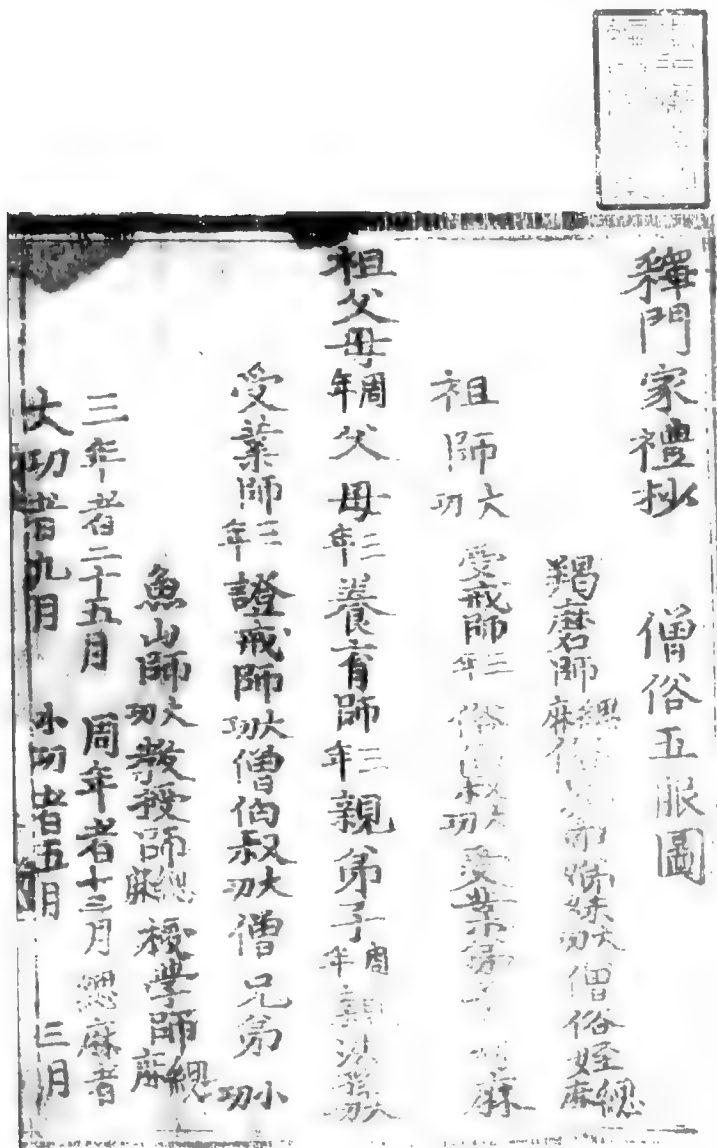 釋門家禮抄 僧俗五服圖
羯磨師緦麻 俗 弟姊妹大功 僧俗姪緦麻
祖師大功 受戒師三年 俗伯叔大功 受業弟子 麻
祖父母周年 父母三年 養育師三年 親弟子周年 親 大功
受業師三年 證戒師大功 僧伯叔大功 僧兄弟小功
魚山師大功 教授師緦麻 授學師緦麻
三年者二十五月 周年者十三月 緦麻者
大功者九月 小功者五月 三月